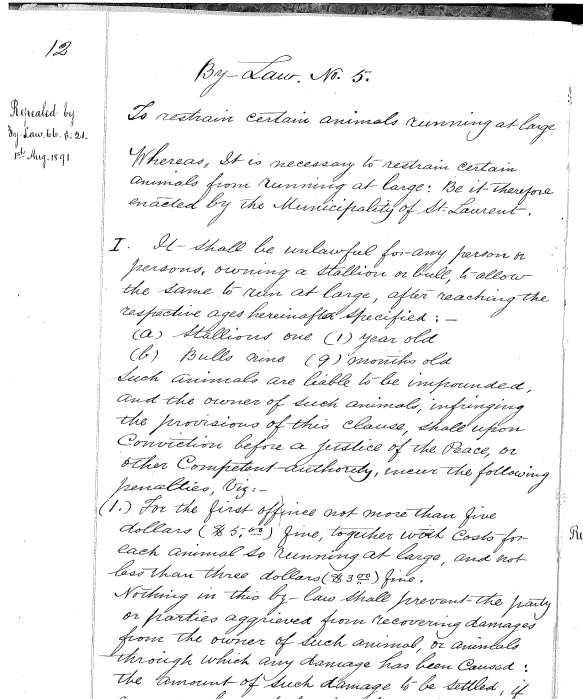 12
By-Law. No. 5.
Repealed by
By-Law. 66. p. 21.
1st Aug. 1891
To restrain certain animals running at large
Whereas, It is necessary to restrain certain
animals from running at large: Be it therefore
enacted by the Municipality of St. Laurent.
I. It shall be unlawful for any person or
persons, owning a stallion or bull, to allow
the same to run at large, after reaching the
respective ages hereinafter specified:—
(a) Stallions one (1) year old
(b) Bulls nine (9) months old
Such animals are liable to be impounded,
and the owner of such animals, infringing
the provisions of this clause, shall upon
Conviction before a Justice of the Peace, or
other Competent authority, incur the following
penalties, Viz:—
(1.) For the first offince not more than five
dollars ($5.00) fine, together with Costs for
each animal so running at large, and not
less than three dollars ($3 00) fine.
Nothing in this by-law shall prevent the party
or parties aggrieved from recovering damages
from the owner of such animal, or animals
through which any damage has been Caused:
the amount of such damage to be settled, if
Re